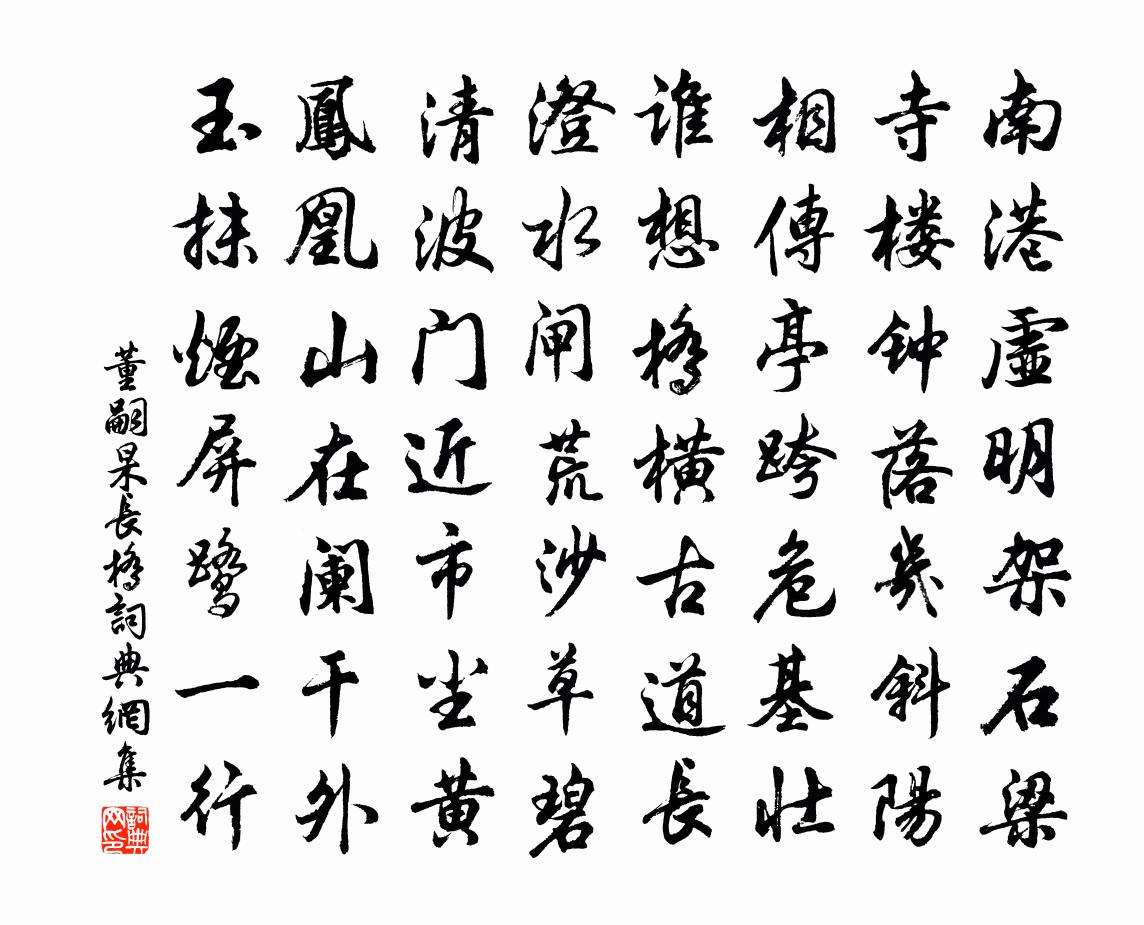 南港虛明架石梁
寺楼钟落幾斜陽
相傳亭跨危基壮
谁想橋横古道長
澄水闸荒沙草碧
清波门近市尘黄
鳳凰山在阑干外
玉抹煙屏鹭一行
董嗣杲長橋詞典網集
詞典网印